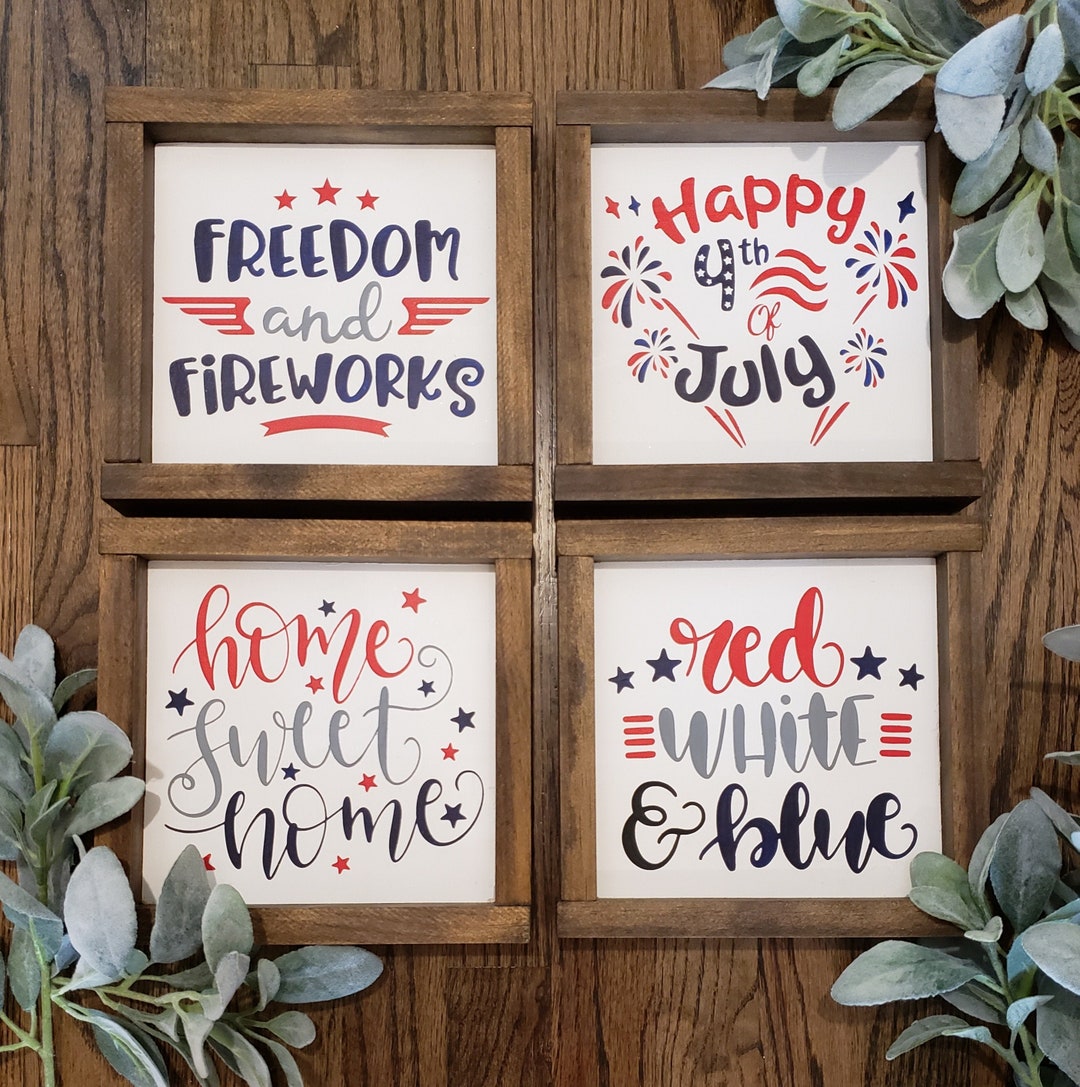 FREEDOM
and
FiREWORKS
Happy
4th
Of
July
home
sweet
home
red
WHiTE
& blue